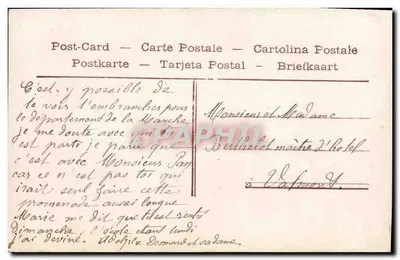 Post-Card – Carte Postale – Cartolina Postale
Postkarte – Tarjeta Postal – Briefkaart
C'est-y possible de
te voir t'embrancher pour
le département de la Manche
je me doute avec qui
est parti je parie que
c'est avec Monsieur
car ce n'est pas toi qui
irait seul faire cette
promenade aussi longue
Marie me dit que
dimanche, l'oncle étant lundi
j'ai deviné.
Monsieur et Madame
Berthelot maître d'hôtel
à Valmont.